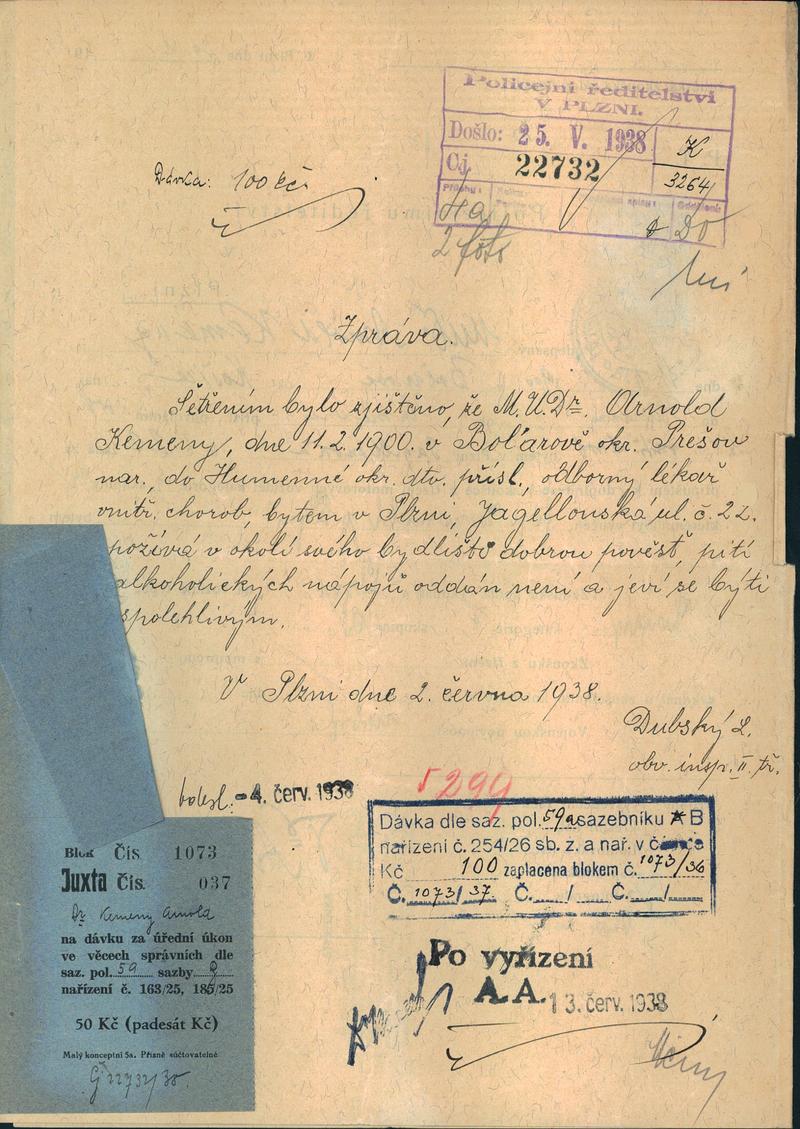 Policejní ředitelství
V PLZNI.
Došlo: 25. V. 1938
K
Čj. 22732
3264
Přílohy:
Oddělení:
Ha
2 foto
Dávka: 100 Kč
Zpráva.
Šetřením bylo zjištěno, že M.U.Dr. Arnold
Kemeny, dne 11.2.1900. v Boľarově okr. Prešov
nar., do Humenné okr. dtv. přísl., odborný lékař
vnitř. chorob, bytem v Plzni, Jagellonská ul. č. 22.
požívá v okolí svého bydliště dobrou pověst, pití
alkoholických nápojů oddán není a jeví se býti
spolehlivým.
V Plzni dne 2. června 1938.
Dubský L.
obv. insp. II. tř.
- 4. červ. 1938
5299
Dávka dle saz. pol. 59a sazebníku A B
nařízení č. 254/26 sb. z. a nař. v
Kč 100 zaplacena blokem č. 1073/36
Č. 1073/37 Č. / Č. /
Blok Čís 1073
Juxta Čís. 037
Dr Kemeny Arnold
na dávku za úřední úkon
ve věcech správních dle
saz. pol. 59 sazby
nařízení č. 163/25, 185/25
50 Kč (padesát Kč)
Malý konceptní 5a. Přísně súčtovatelné
22732/38
Po vyřízení
A.A. 13. červ. 1938